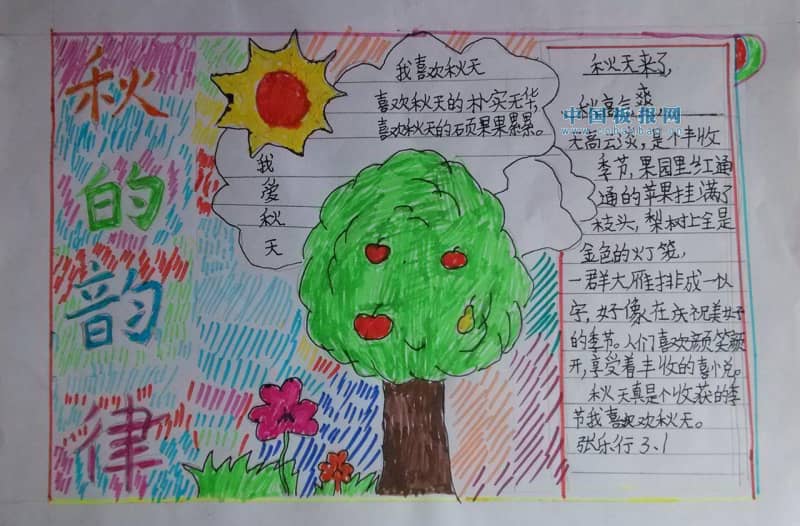 秋的韵律
我喜欢秋天
喜欢秋天的朴实无华,
喜欢秋天的硕果果累累。
我爱秋天
秋天来了,
秋高气爽,
中国板报网
天高云淡,是个丰收
季节,果园里红通
通的苹果挂满了
枝头,梨树上全是
金色的灯笼,
一群大雁排成一
字,好像在庆祝美好
的季节。人们喜欢颜笑颜
开,享受着丰收的喜悦。
秋天真是个收获的季
节我喜欢欢秋天。
张乐行 3、1